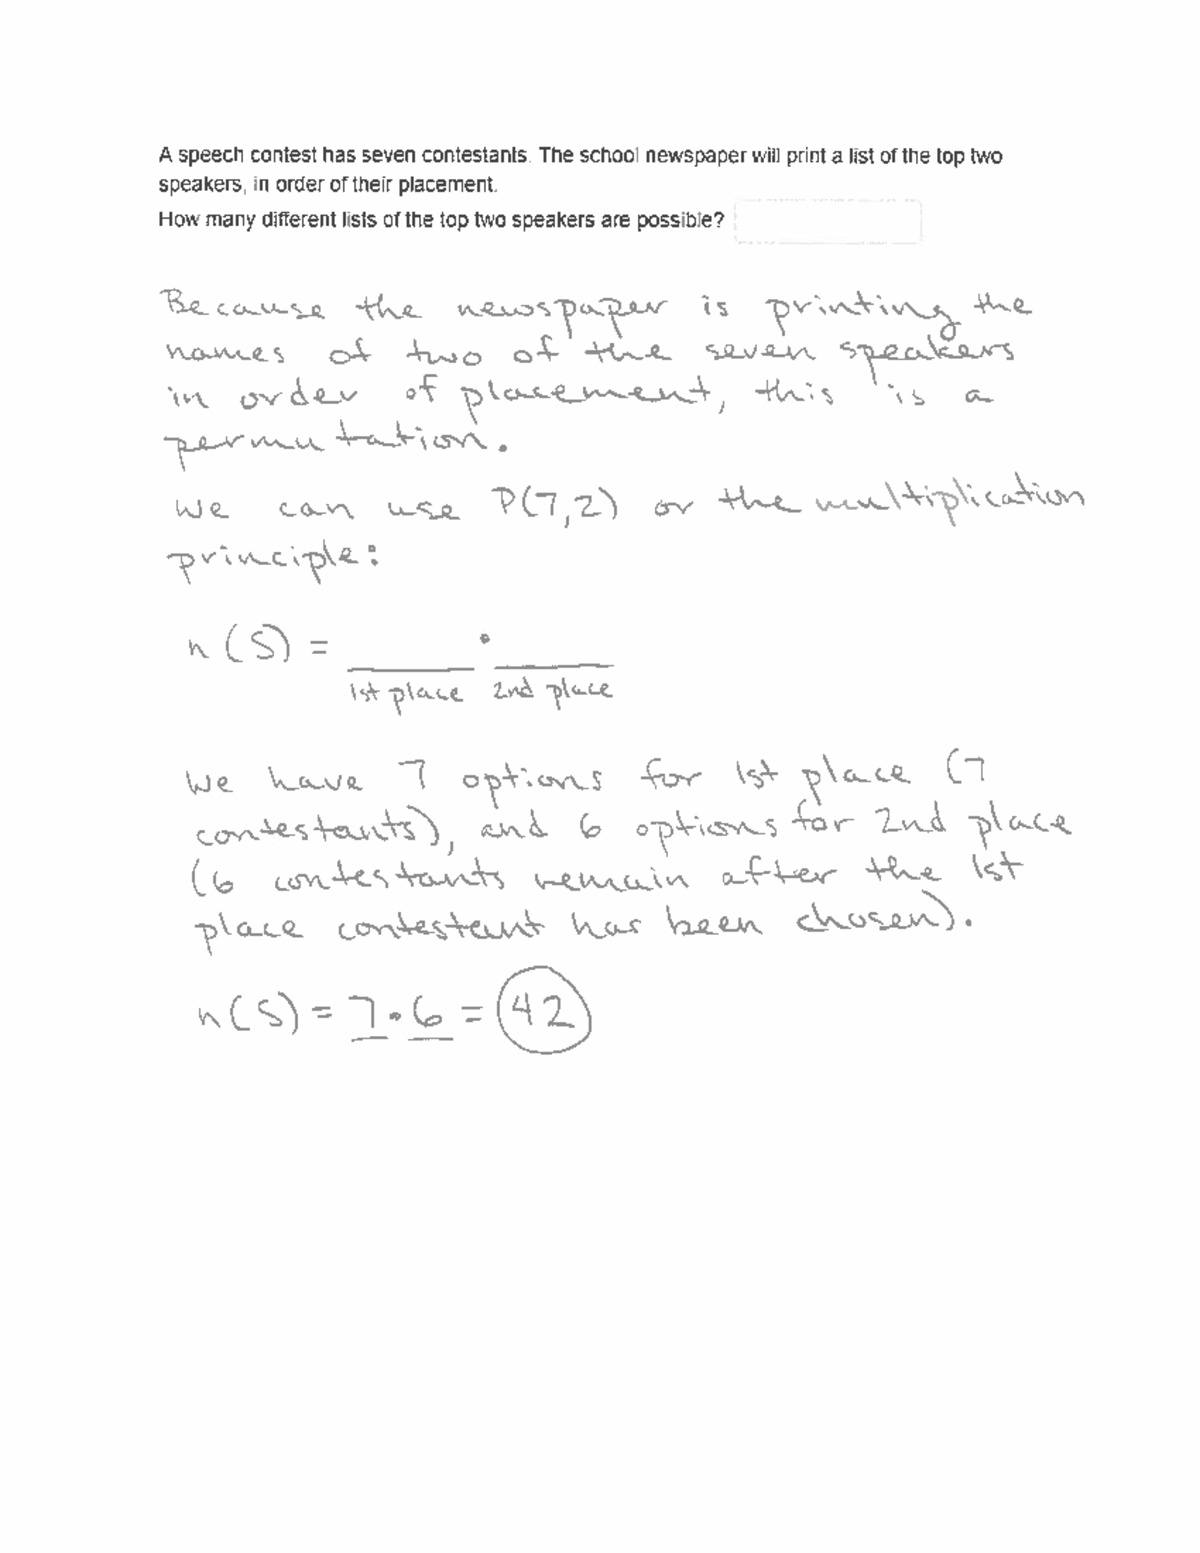 A speech contest has seven contestants. The school newspaper will print a list of the top two
speakers, in order of their placement.
How many different lists of the top two speakers are possible?
Because the newspaper is printing the
names of two of the seven speakers
in order of placement, this is a
permutation.
We can use P(7,2) or the multiplication
principle:
n(S) = ____ • ____
1st place 2nd place
We have 7 options for 1st place (7
contestants), and 6 options for 2nd place
(6 contestants remain after the 1st
place contestant has been chosen).
n(S) = 7 • 6 = 42